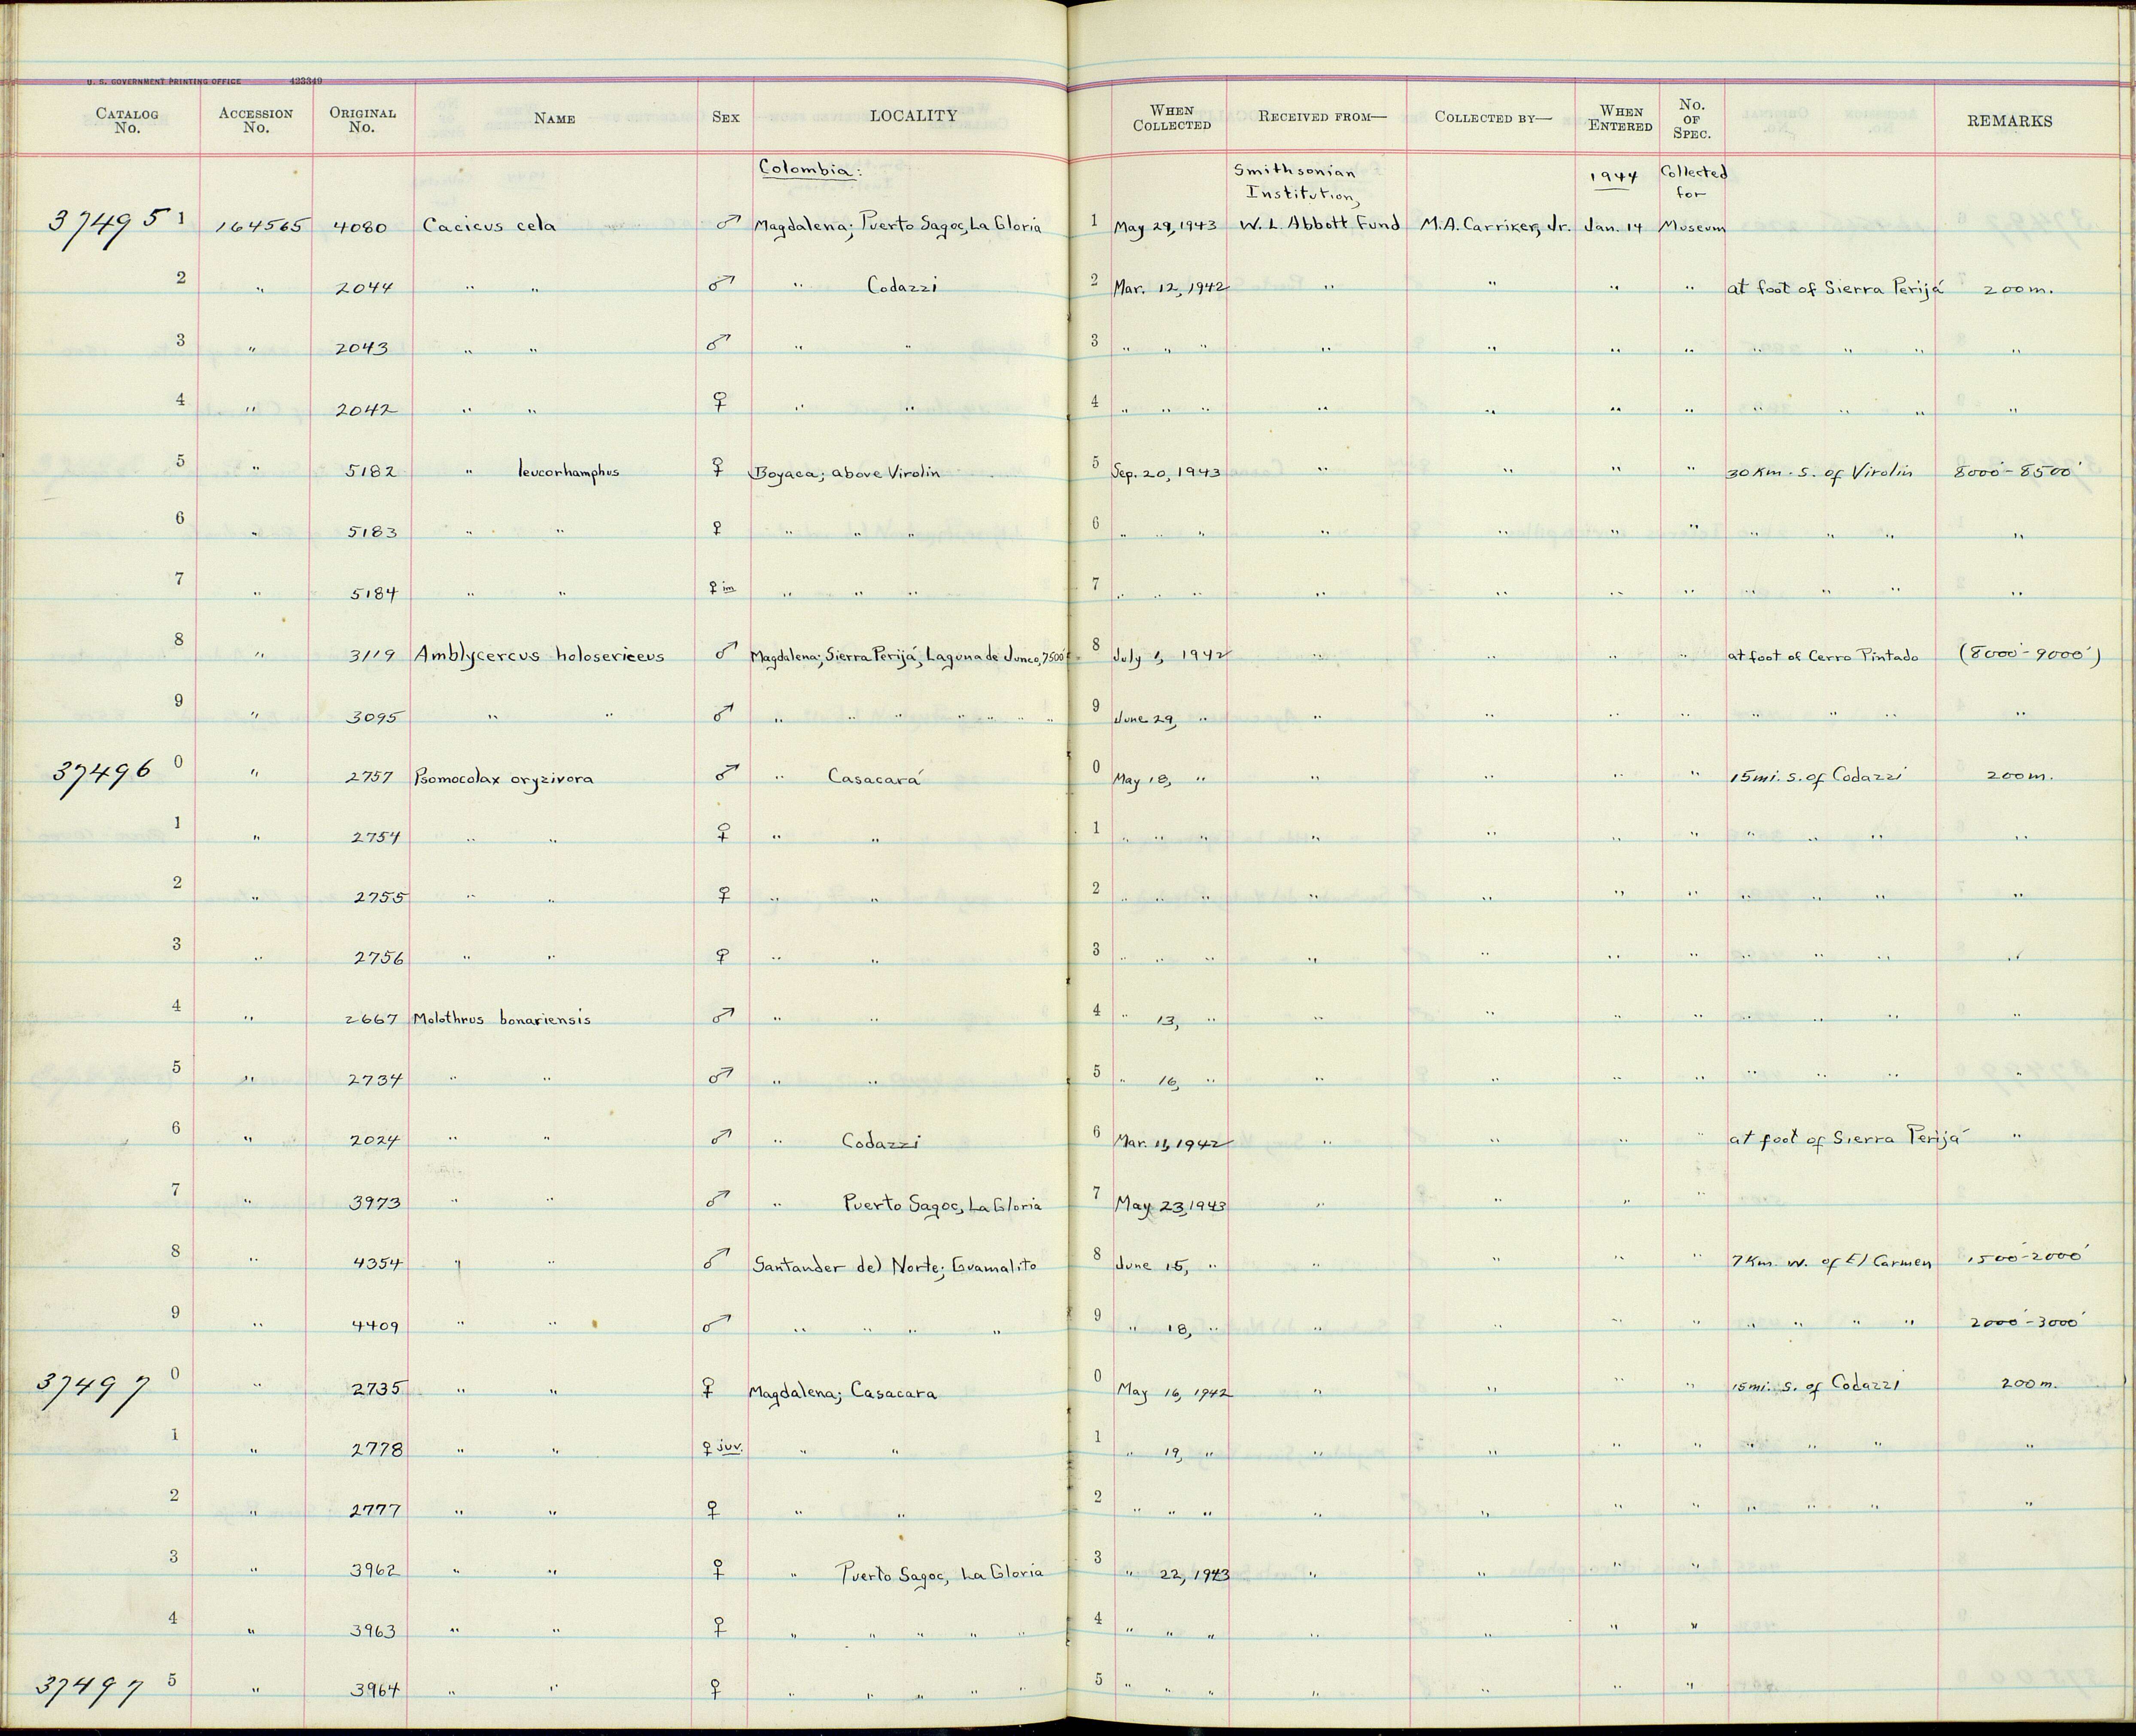 U. S. GOVERNMENT PRINTING OFFICE 423349
CATALOG No. ACCESSION No. ORIGINAL No. NAME SEX LOCALITY WHEN COLLECTED RECEIVED FROM— COLLECTED BY— WHEN ENTERED No. OF SPEC. REMARKS
Colombia: Smithsonian Institution, 1944 Collected for
37495 1 164565 4080 Cacicus cela ♂ Magdalena; Puerto Sagoc, La Gloria 1 May 29, 1943 W. L. Abbott Fund M.A. Carriker, Jr. Jan. 14 Museum
2 " 2044 " " ♂ " Codazzi 2 Mar. 12, 1942 " " " " at foot of Sierra Perijá 200 m.
3 " 2043 " " ♂ " " 3 " " " " " " " " " " "
4 " 2042 " " ♀ " " 4 " " " " " " " " " " "
5 " 5182 " leucorhamphus ♀ Boyaca; above Virolin 5 Sep. 20, 1943 " " " " 30 Km. S. of Virolin 8000'-8500'
6 " 5183 " " ♀ " " " 6 " " " " " " " " " " "
7 " 5184 " " ♀ im " " " 7 " " " " " " " " " " "
8 " 3119 Amblycercus holosericeus ♂ Magdalena; Sierra Perijá, Laguna de Junco, 7500 ft. 8 July 1, 1942 " " " " at foot of Cerro Pintado (8000'-9000')
9 " 3095 " " ♂ " " " " " " " 9 June 29, " " " " " " " " "
37496 0 " 2757 Psomocolax oryzivora ♂ " Casacará 0 May 18, " " " " " 15 mi. S. of Codazzi 200 m.
1 " 2754 " " ♀ " " 1 " " " " " " " " " " "
2 " 2755 " " ♀ " " 2 " " " " " " " " " " "
3 " 2756 " " ♀ " " 3 " " " " " " " " " " "
4 " 2667 Molothrus bonariensis ♂ " " 4 " 13, " " " " " " " " "
5 " 2734 " " ♂ " " 5 " 16, " " " " " " " " "
6 " 2024 " " ♂ " Codazzi 6 Mar. 11, 1942 " " " " at foot of Sierra Perijá "
7 " 3973 " " ♂ " Puerto Sagoc, La Gloria 7 May 23, 1943 " " " "
8 " 4354 " " ♂ Santander del Norte; Guamalito 8 June 15, " " " " " 7 Km. W. of El Carmen 1500'-2000'
9 " 4409 " " ♂ " " " " 9 " 18, " " " " " " " " " 2000'-3000'
37497 0 " 2735 " " ♀ Magdalena; Casacara 0 May 16, 1942 " " " " 15 mi. S. of Codazzi 200 m.
1 " 2778 " " ♀ juv. " " 1 " 19, " " " " " " " " "
2 " 2777 " " ♀ " " 2 " " " " " " " " " " "
3 " 3962 " " ♀ " Puerto Sagoc, La Gloria 3 " 22, 1943 " " " "
4 " 3963 " " ♀ " " " " " 4 " " " " " " "
37497 5 " 3964 " " ♀ " " " " " 5 " " " " " " "